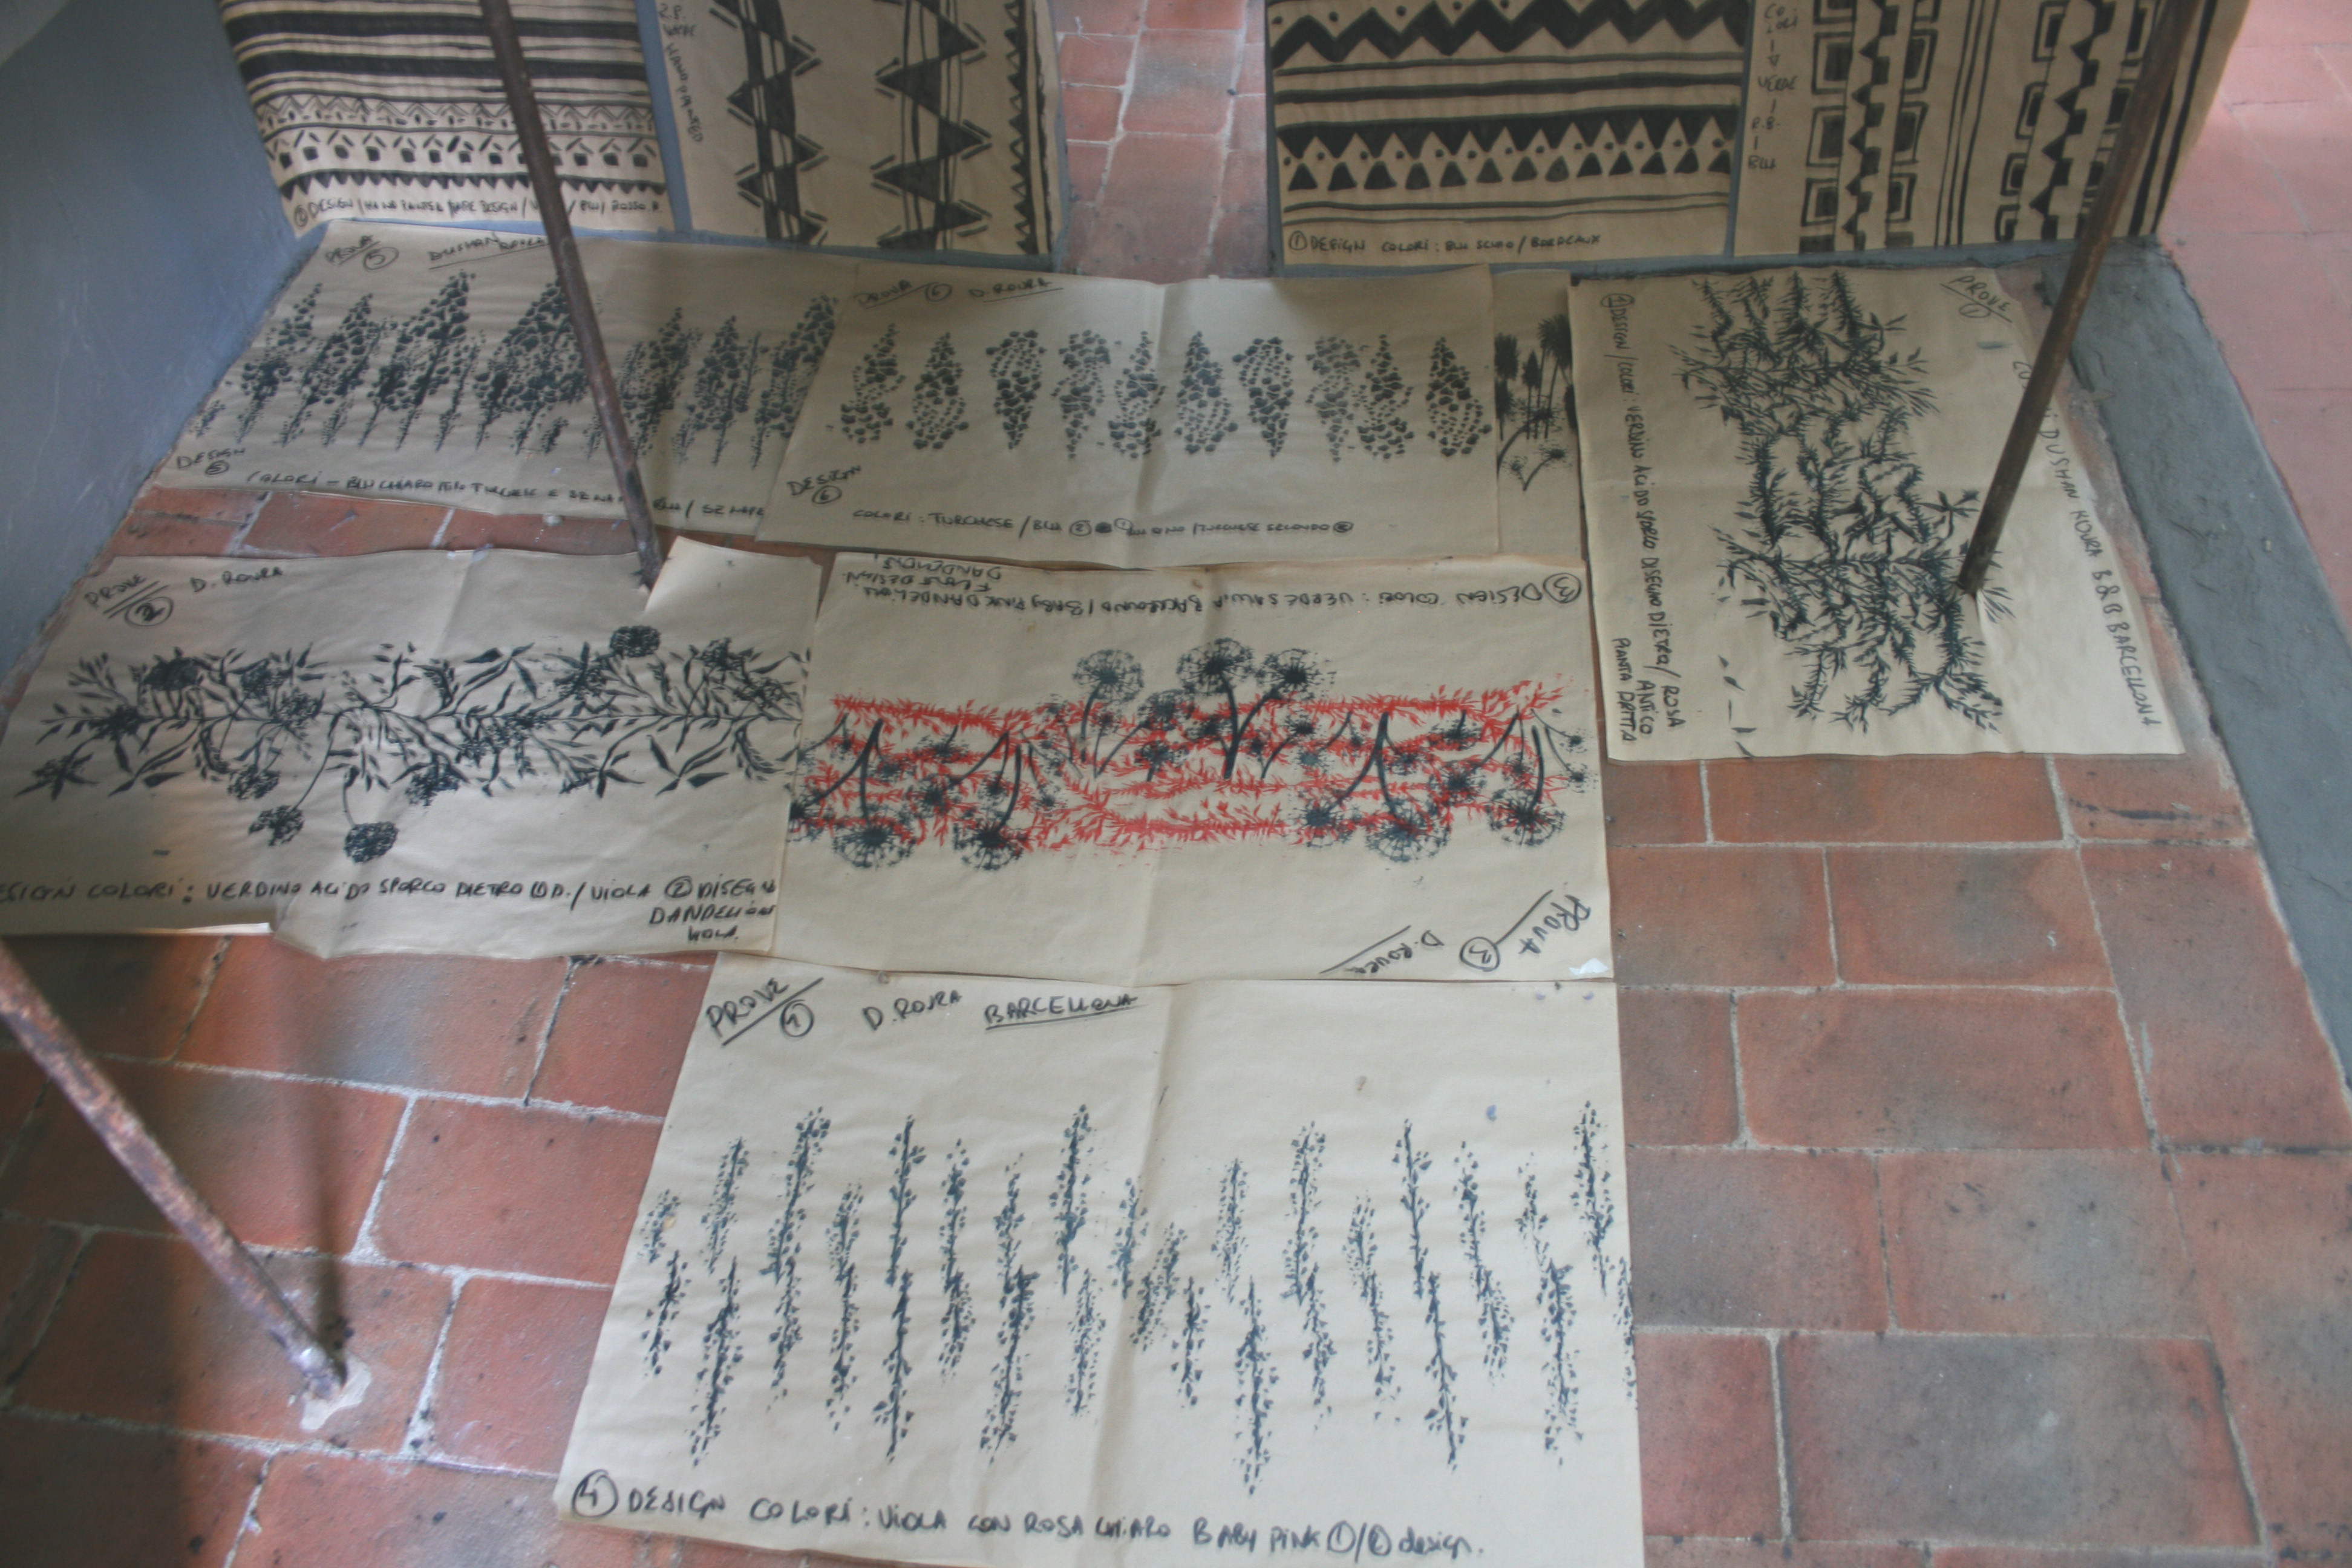 DESIGN / HAND PAINTED / / BLU / ROSSO P.
① DESIGN COLORI: BLU SCURO / BORDEAUX
COLORI
VERDE
BLU
PROVA ⑤ DUSHAN ROURA
DESIGN ⑤
COLORI - BLU CHIARO
PROVA ⑥ D. ROURA
DESIGN ⑥
COLORI: TURCHESE / BLU ②
PROVE ①
DUSHAN ROURA B&B BARCELLONA
① DESIGN / COLORI VERDINO ACIDO SPORCO DISEGNO DIETRO / ROSA ANTICO
PIANTA DRITTA
PROVE ② D. ROURA
DESIGN COLORI: VERDINO ACIDO SPORCO DIETRO ① D. / VIOLA ② DISEGNO
DANDELION
VIOLA.
③ DESIGN COLORI: VERDE SALVIA BACKGROUND / BABY PINK DANDELION
DESIGN
PROVA ③
D. ROURA
PROVE ④ D. ROURA BARCELLONA
④ DESIGN COLORI: VIOLA CON ROSA CHIARO BABY PINK ①/② design.